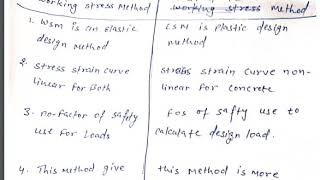 working stress Method
working stress method
1. WSM is an Elastic
design method
LSM is Plastic design
method
2. stress strain curve
linear for Both
stress strain curve non-
linear for concrete
3. no-factor of safty
use for Loads
Fos of safty use to
calculate design load.
4. This method give
this method is more